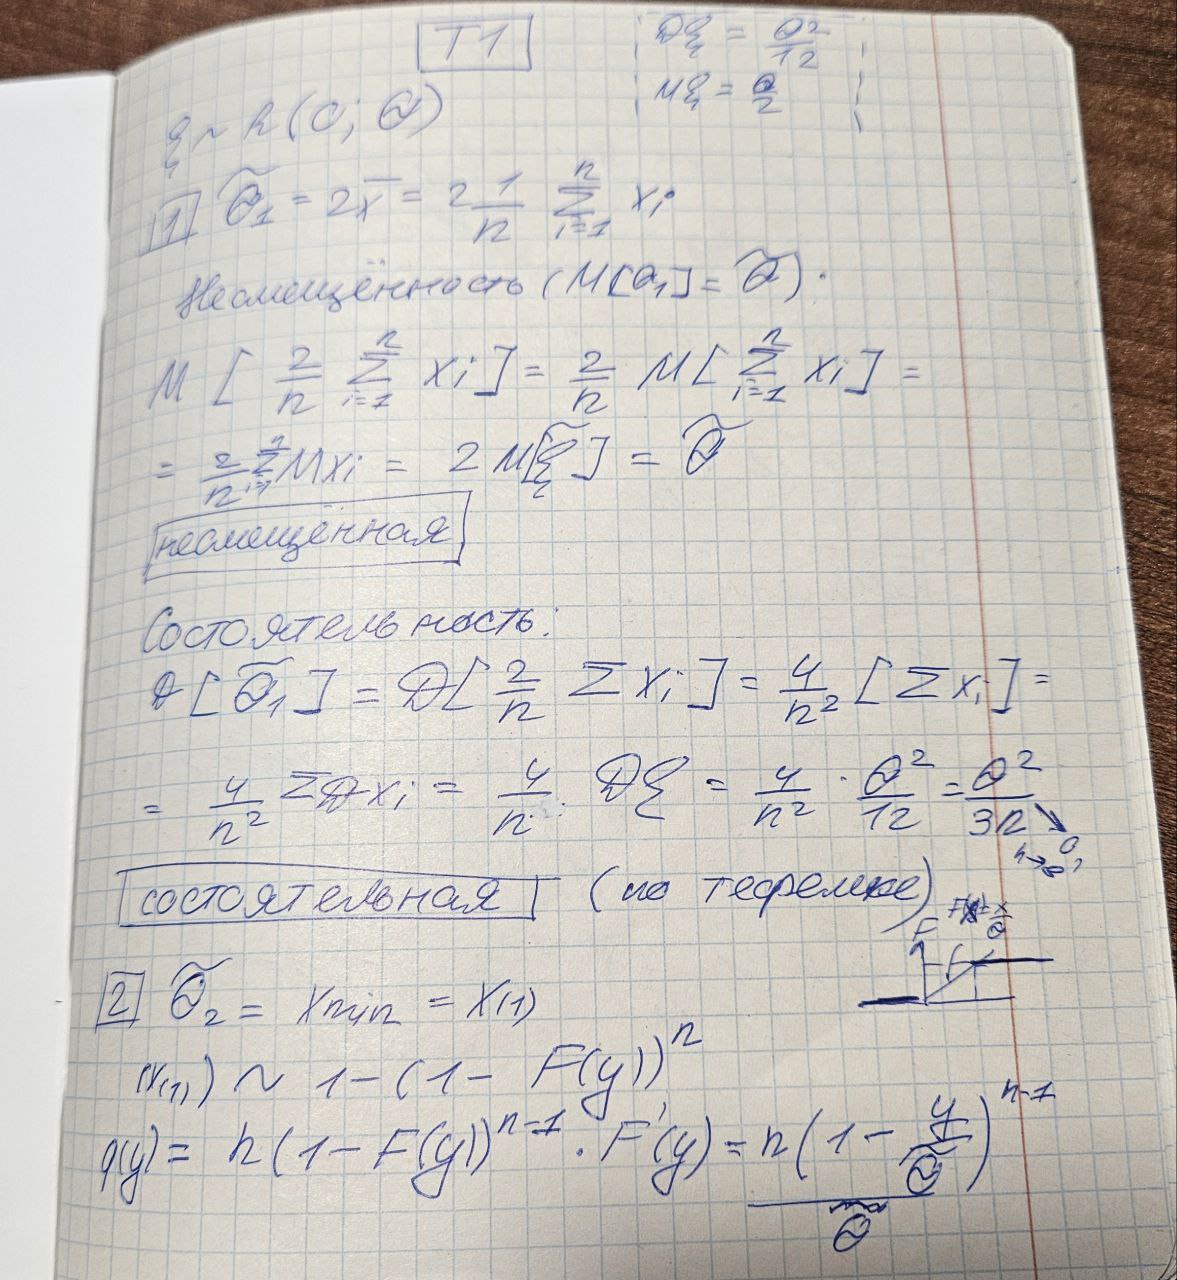 T1
Dξ = θ²/12
Mξ = θ/2
ξ ~ R(0; θ)
1 θ̃₁ = 2x̄ = 2 1/n Σ_{i=1}^{n} xᵢ
Несмещённость (M[θ₁] = θ̃).
M [ 2/n Σ_{i=1}^{n} xᵢ ] = 2/n M [ Σ_{i=1}^{n} xᵢ ] =
= 2/n Σ_{i=1}^{n} M xᵢ = 2 M[ξ̃] = θ̃
несмещённая
Состоятельность:
D [ θ̃₁ ] = D[ 2/n Σ xᵢ ] = 4/n² [ Σ xᵢ ] =
= 4/n² Σ D xᵢ = 4/n · Dξ = 4/n² · θ²/12 = θ²/3n → 0, n→∞
состоятельная (по теоремке)
F F(x) = x/θ
2 θ̃₂ = xmin = x(1)
(x(1)) ~ 1 - (1 - F(y))ⁿ
q(y) = n(1 - F(y))ⁿ⁻¹ · F'(y) = n(1 - y/θ̃)ⁿ⁻¹ / θ̃